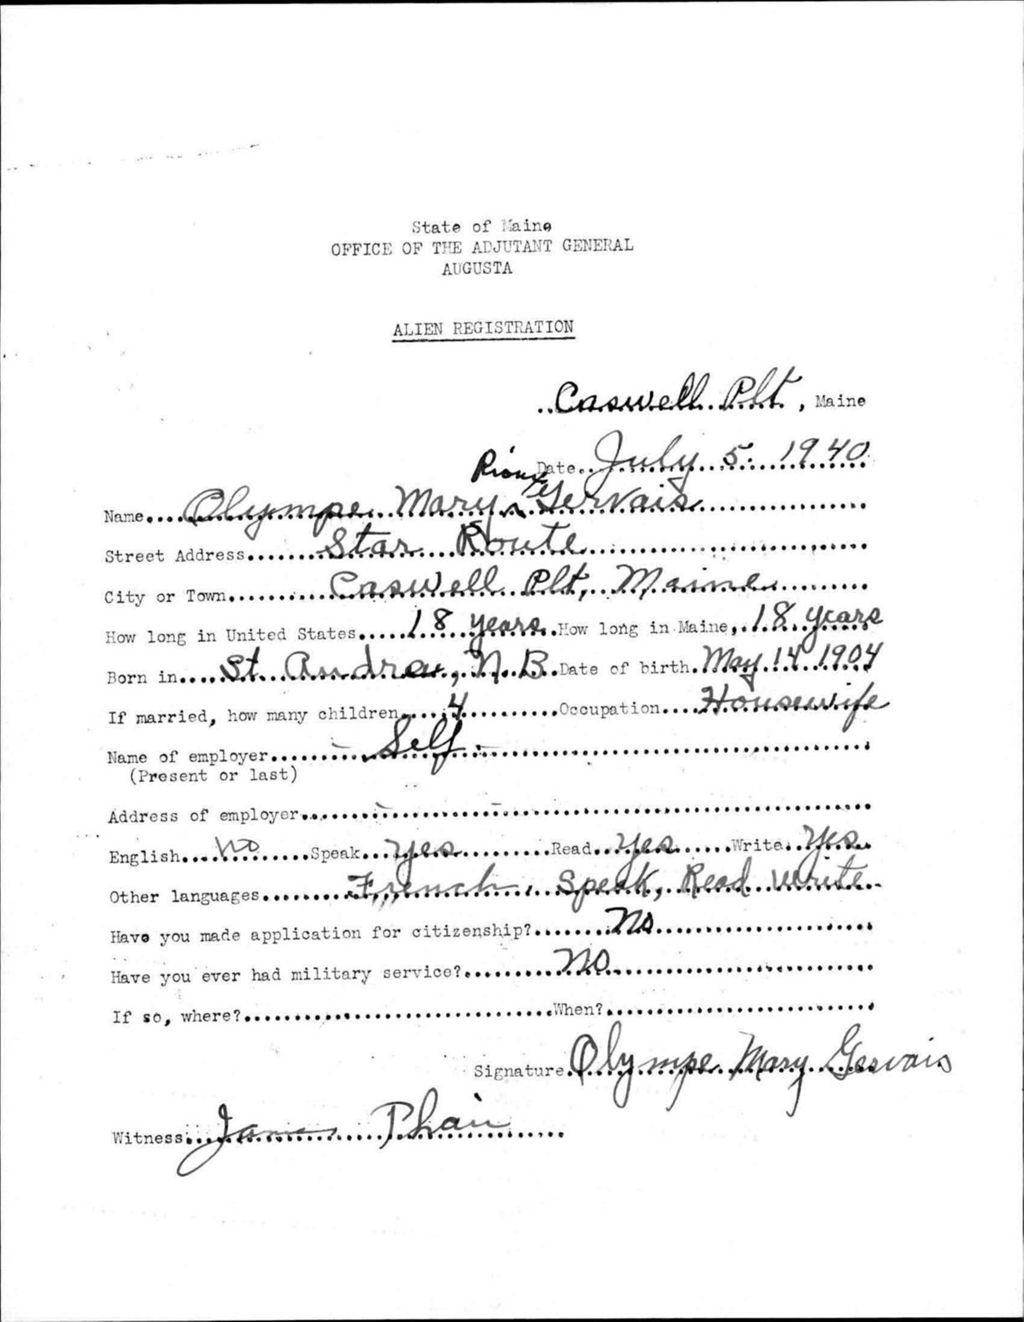 State of Maine
OFFICE OF THE ADJUTANT GENERAL
AUGUSTA
ALIEN REGISTRATION
Caswell Plt, Maine
Date July 5. 1940
Rioux
Name Olympe Mary Gervais
Street Address Star Route
City or Town Caswell Plt, Maine
How long in United States 18 years How long in Maine, 18 years
Born in St. Andre, N. B. Date of birth May 14 1904
If married, how many children 4 Occupation Housewife
Name of employer Self
(Present or last)
Address of employer
English No Speak yes Read yes Write Yes
Other languages French. Speak, Read write
Have you made application for citizenship? No
Have you ever had military service? NO
If so, where? When?
Signature Olympe Mary Gervais
Witness James Phair